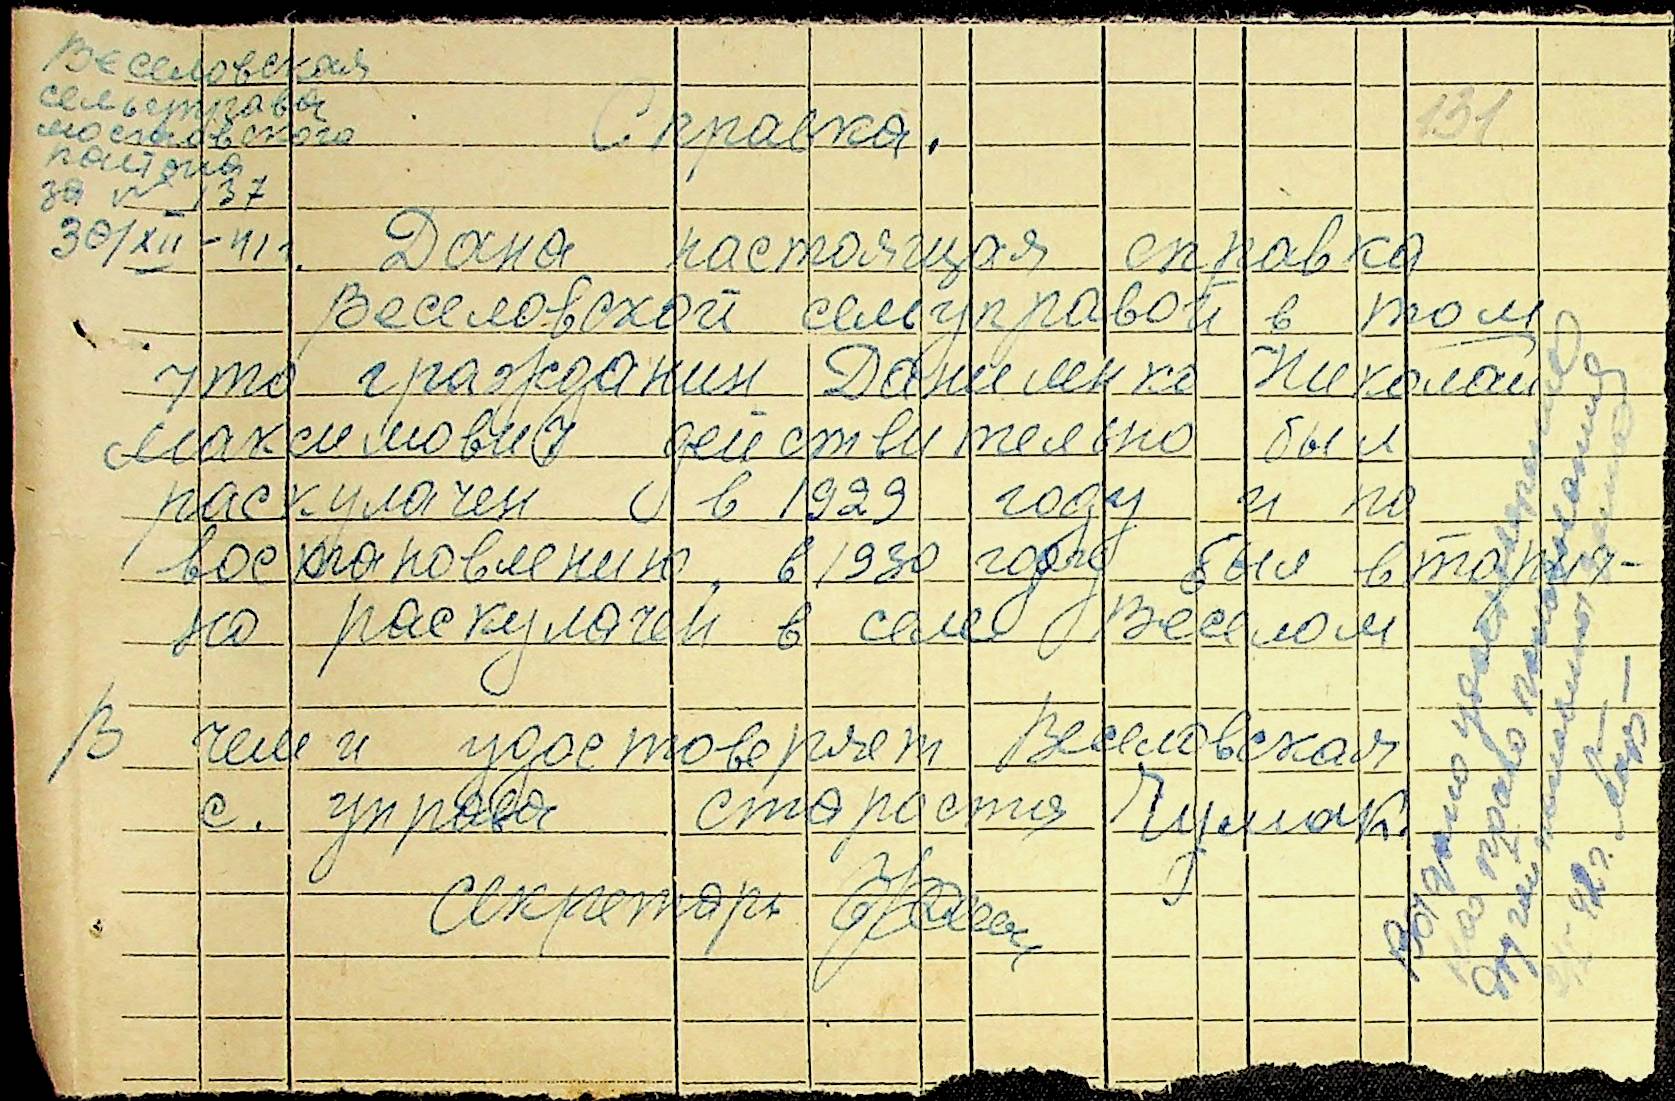 Веселовская
сельуправа
района
за № 137
30/XII-41 г.
131
Справка.
Дана настоящая справка
Веселовской сельуправой в том
что гражданин Даниленко Николай
Максимович действительно был
раскулачен в 1929 году и по
востановлению, в 1930 году был вторич-
но раскулачен в селе Веселом
В чем и удостоверяет Веселовская
с. управа староста Чумак
секретарь
право
42 г.